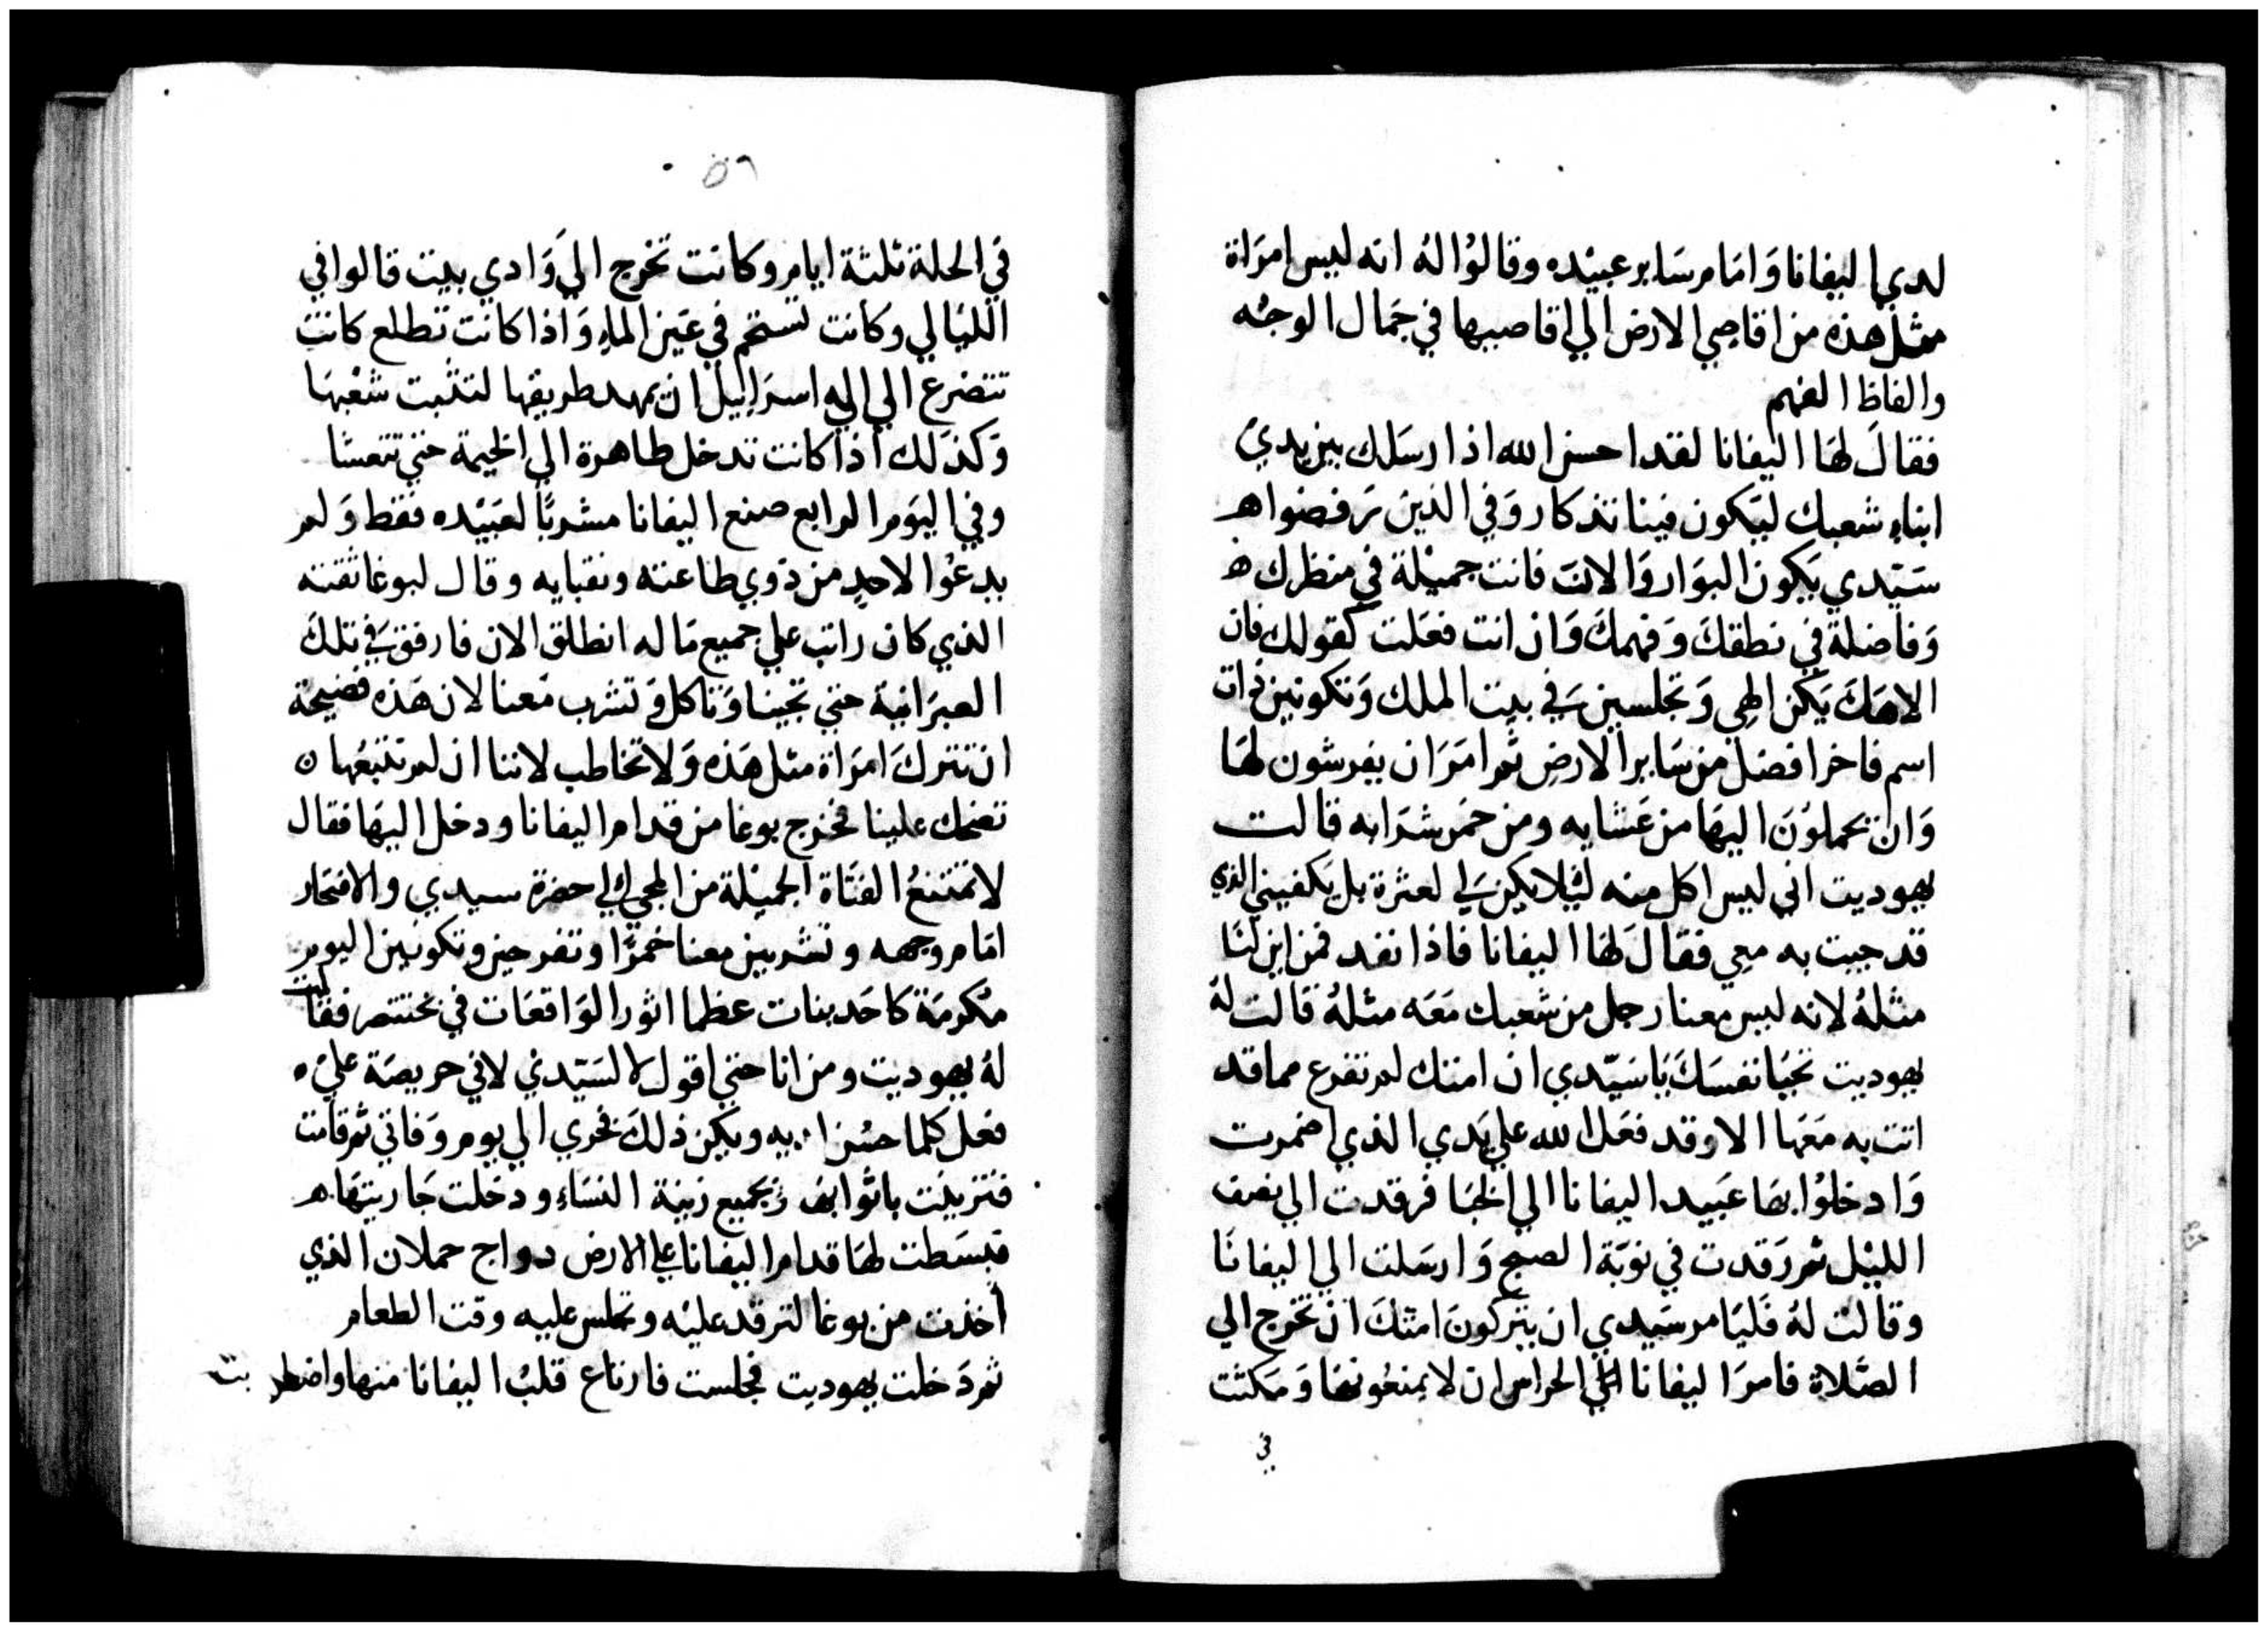 لدي اليفانا وَامَام سَاير عبيْده وقالوُا لهُ انه ليس امرَاة
مثل هذه من اقاصي الارض الي اقاصيها في جَمال الوجْه
والفاظ الفهم
فقالَ لهَا اليفانا لقد احسن الله اذ ارسَلك بين يدي
ابناء شعبك ليَكون فينا تذكار وَفي الذين رَفضوا
سَيّدي يَكون البوَار وَالان انت فانت جميْلة في منظرك
وَفاضلة في نطقكَ وَفهمكَ وَان انت فعَلت كقولك فان
الاهَكَ يَكن الهي وَتجلسين في بيت الملك وَتكونين ذات
اسم فاخر افضل من سَاير الارض ثم امَرَ ان يفرشون لهَا
وَان يحملوُنَ اليهَا من عَشايه ومن خمَر شرَابه قالت
يهوديت اني ليس اكل منه ليْلا يكن لي لعثرة بل يَكفيني الذي
قد جيت به معي فقالَ لهَا اليفانا فاذا نفد فمن اين لنَا
مثلهُ لانه ليس معنا رجل من شعبك مَعَه مثلهُ قالت لهُ
يهوديت تحيَا نفسَكَ يَا سَيّدي ان امتك لم تفرغ مما قد
اتت به مَعَها الا وقد فعَل الله علي يَدي الذي اضمرت
وَادخلوُا بهَا عَبيد اليفانا الي الخبَا فرقدت الي نصف
الليْل ثم رَقدت في نوَبَة الصبح وَارسَلت الي اليفانَا
وقالت لهُ فَليَامر سَيدي ان يتركونَ امتكَ ان تخرج الي
الصَّلاة فامرَ اليفانا الي الحراس ان لا يمنعُونهَا وَمَكثت
في
٥٦
في الحلة ثلثة ايام وكانت تخرج الي وَادي بيت قالوا في
الليَالي وكانت تستحم في عَين الماءِ وَاذا كانت تطلع كانت
تتضرع الي اله اسرَاييل ان يمهد طريقها لتثبت شعْبهَا
وَكذلك اذا كانت تدخل طاهرة الي الخيمة حتي تتعشا
وفي اليوَم الرابع صنع اليفانا مشربًا لعَبيْده فقط وَلم
يدعُوا لاحدٍ من ذوي طاعته ونقبايه وقال لبوغا ثقته
الذي كان راتب علي جميع مَا له انطلق الان فارفق في تلكَ
العبرَانية حتي تجينا وَتاكل وَتشرب مَعنا لان هَذه فضيحَة
ان تتركَ امرَاة مثل هَذه وَلا تخاطب لاننا ان لم نتبعُها
تضحك علينا فخرج بوغا من قدام اليفانا ودخل اليهَا فقال
لا تمتنعُ الفتَاة الجميْلة من المجي الي حضرة سيدي والافتخار
امَام وجهه وتشربين معنا خمرًا وتفرحين وتكونين اليوم
مَكرمَة كاحَد بنات عظما اثور الوَاقعَات في بختنصر فقالت
لهُ يهوديت ومن انا حتي اقول لا لسَيّدي لاني حريصَة علي
فعل كلما حسُن اديه ويكن ذلكَ فخري الي يوم وَفاتي ثم قامت
فتزينت باثوابها وَبجميع زينة النسَاءِ ودخلت جَاريتهَا
فبسَطت لهَا قدام اليفانا علي الارض دواج حملان الذي
اخذت من بوغا لترقد عليْه وتجلس عليه وقت الطعام
ثم دَخلت يهوديت فجلست فارتاع قلبُ اليفانا منها واضطربت